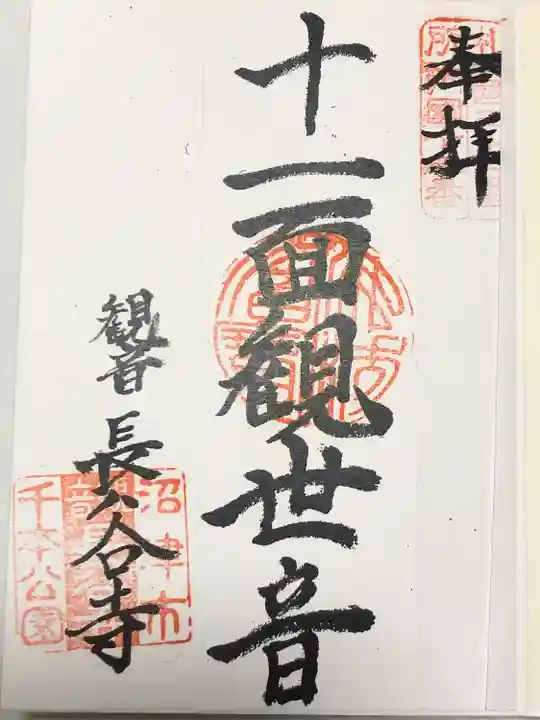 奉拝
十一面観世音
観音 長谷寺
沼津市
千本公園